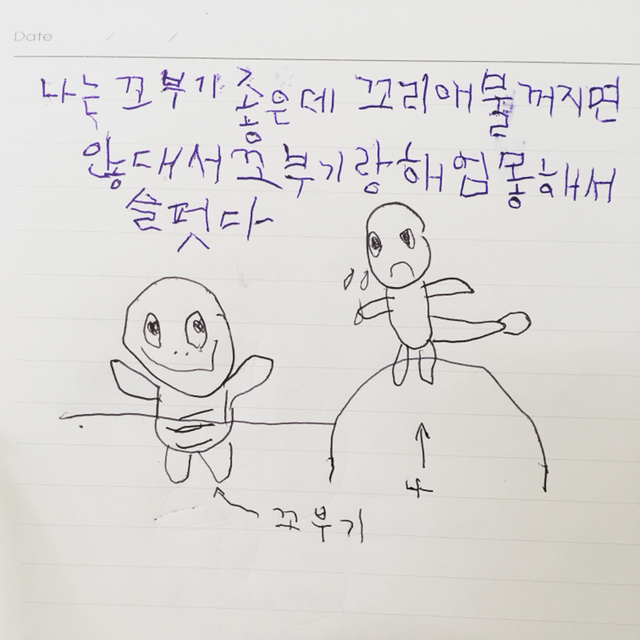 Date / /
나는 꼬부기 좋은데 꼬리애불꺼지면
않대서꼬부기랑해엄몽해서
슬펏다
나
꼬부기